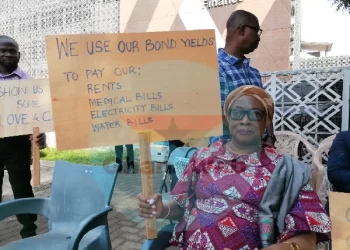 Finance
WE USE OUR BOND YIELDS
TO PAY OUR;
RENTS
MEDICAL BILLS
ELECTRICITY BILLS
WATER BILLS
SHOW US
SOME
LOVE &